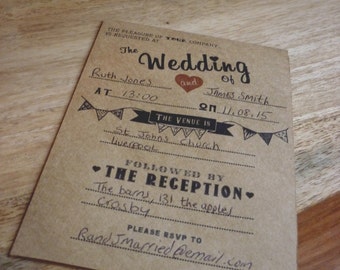 THE PLEASURE OF YOUR COMPANY
IS REQUESTED AT
The
Wedding
Ruth Jones and Of James Smith
AT 13:00 ON 11.08.15
THE VENUE IS
St Johns Church
Liverpool
FOLLOWED BY
THE RECEPTION
The barn, 131 the apples
Crosby
PLEASE RSVP TO
RandJmarried@email.com